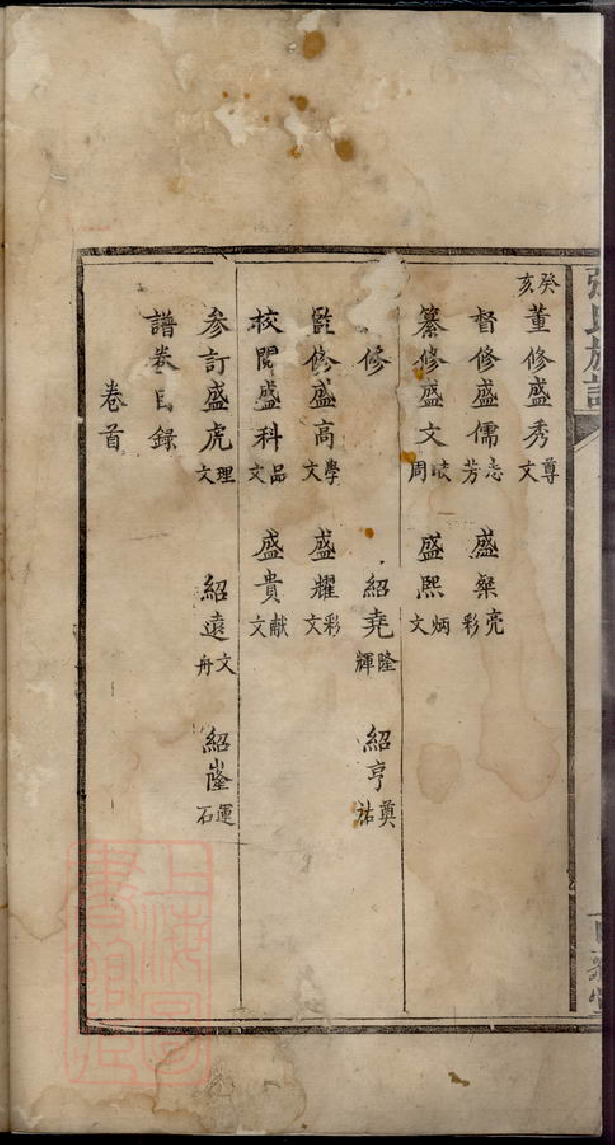 癸亥董修盛秀尊文
督修盛儒志芳 盛粲亮彩
纂修盛文周 盛熙炳文
修 紹堯隆輝 紹亨奠祐
監修盛高學文 盛耀彩文
校閱盛科品文 盛貴獻文
参訂盛虎理文 紹遠文舟 紹嶐運石
譜卷目錄
卷首
上海圖書館藏